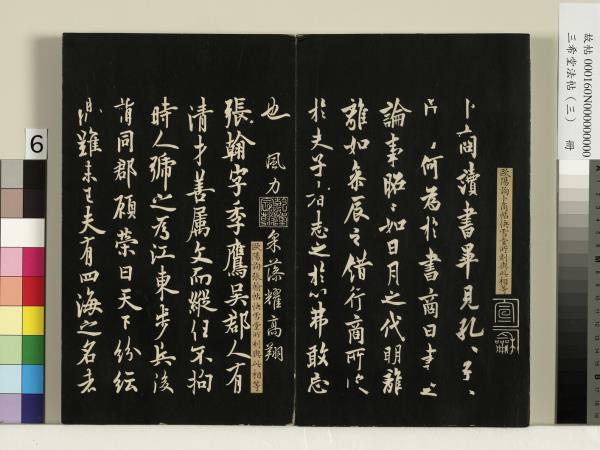 故帖 000160N000000000
三希堂法帖(三) 冊
歐陽詢卜商帖快雪堂所刻與此相等
卜商讀書畢見孔〻子〻
問〻何為於書商曰書之
論事昭〻如日月之代明離
離如參辰之錯行商所受
於夫子者志之於心弗敢忘
也 風力 采藻耀高翔
歐陽詢張翰帖快雪堂所刻與此相等
張翰字季鷹吳郡人有
清才善屬文而縱任不拘
時人號之為江東步兵後
謂同郡顧榮曰天下紛紜
禍難未已夫有四海之名者
6